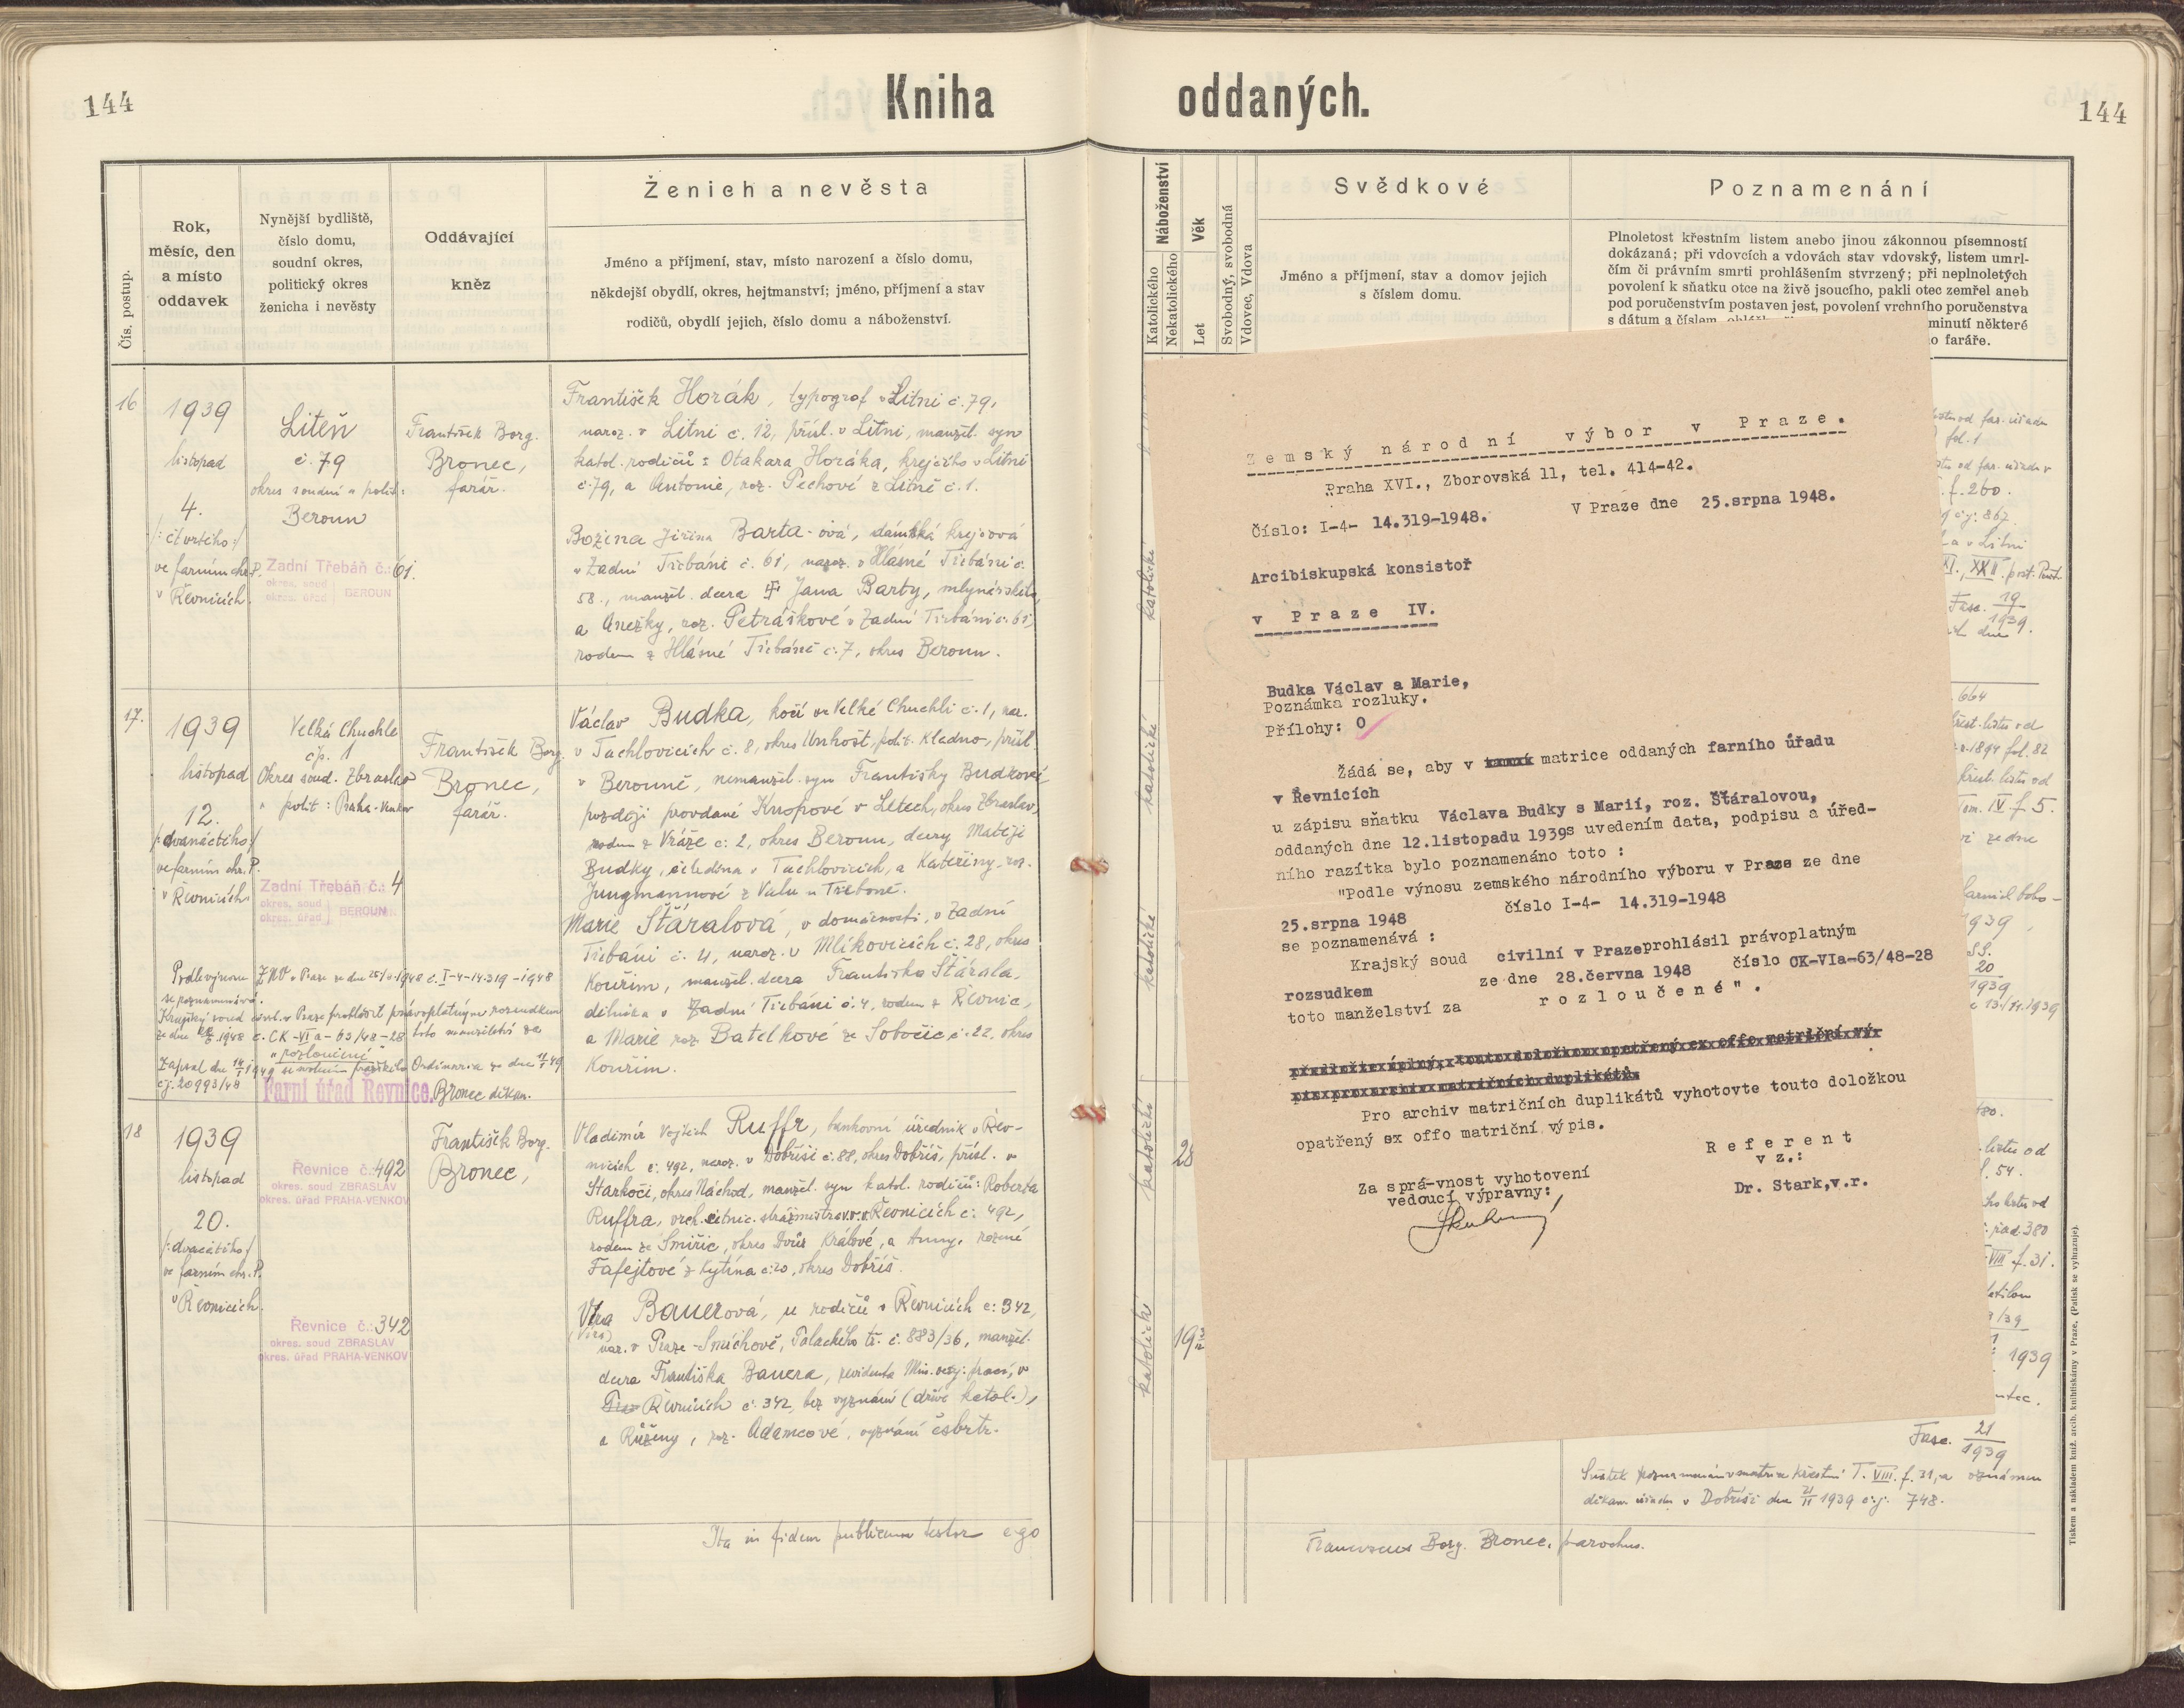 144
Kniha oddaných.
144
Čís. postup.
Rok,
měsíc, den
a místo
oddavek
Nynější bydliště,
číslo domu,
soudní okres,
politický okres
ženicha i nevěsty
Oddávající
kněz
Ženich a nevěsta
Jméno a příjmení, stav, místo narození a číslo domu,
někdejší obydlí, okres, hejtmanství; jméno, příjmení a stav
rodičů, obydlí jejich, číslo domu a náboženství.
Náboženství
Katolického
Nekatolického
Věk
Let
Svobodný, svobodná
Vdovec, Vdova
Svědkové
Jméno a příjmení, stav a domov jejich
s číslem domu.
Poznamenání
Plnoletost křestním listem anebo jinou zákonnou písemností
dokázaná; při vdovcích a vdovách stav vdovský, listem umrl-
čím či právním smrti prohlášením stvrzený; při neplnoletých
povolení k sňatku otce na živě jsoucího, pakli otec zemřel aneb
pod poručenstvím postaven jest, povolení vrchního poručenstva
s dátum a číslem,
minutí některé
o faráře.
16
1939
listopad
4.
/:čtvrtého:/
ve farním chr. P.
v Řevnicích.
Liteň
č. 79
okres soudní a polit.:
Beroun
Zadní Třebáň č.: 61.
okres. soud
okres. úřad
BEROUN
František Borg.
Bronec,
farář.
František Horák, typograf v Litni č. 79,
naroz. v Litni č. 12, přísl. v Litni, manžel. syn
katol. rodičů: Otakara Horáka, krejčího v Litni
č. 79, a Antonie, roz. Pechové z Litně č. 1.
Božena Jiřina Barta-ová, dámská krejčová
v Zadní Třebáni č. 61, naroz. v Hlásné Třebáni č.
58., manžel. dcera Jana Barty, mlynářského,
a Anežky, roz. Petráškové v Zadní Třebáni č. 61,
rodem z Hlásné Třebáně č. 7, okres Beroun.
17.
1939
listopad
12.
/:dvanáctého:/
ve farním chr. P.
v Řevnicích
Velká Chuchle
čp. 1
Okres soud. Zbraslav
" polit: Praha-Venkov
Zadní Třebáň č.: 4
okres. soud
okres. úřad
BEROUN
František Borg.
Bronec,
farář.
Václav Budka, kočí ve Velké Chuchli č. 1, nar.
v Tachlovicích č. 8, okres Unhošť, polit. Kladno, přísl.
v Berouně, nemanžel. syn Františky Budkové
později provdané Knopové v Letech, okres Zbraslav,
rodem z Vráže č. 2, okres Beroun, dcery Matěje
Budky, čeledína v Tachlovicích, a Kateřiny roz.
Jungmannové z Valu u Třeboně.
Marie Štáralová, v domácnosti, v Zadní
Třebáni č. 4, naroz. v Mlékovicích č. 28, okres
Kouřim, manžel. dcera Františka Štárala,
dělníka v Zadní Třebáni č. 4, rodem z Řevnic,
a Marie roz. Batelkové ze Sobočic, č. 22, okres
Kouřim.
Podle výnosu ZNV v Praze ze dne 25/8 1948 č. I-4-14.319-1948
se poznamenává:
Krajský soud civil. v Praze prohlásil právoplatným rozsudkem
ze dne 28/6 1948 č. CK-VIa-63/48-28 toto manželství za
"rozloučené"
Zapsal dne 14/1 1949 se svolením pražského Ordinaria ze dne 11/1 49
čj. 20993/48
Farní úřad Řevnice. Bronec děkan.
18
1939
listopad
20.
/:dvacátého:/
ve farním chr. P.
v Řevnicích.
Řevnice č.: 492
okres. soud ZBRASLAV
okres. úřad PRAHA-VENKOV
Řevnice č.: 342
okres. soud ZBRASLAV
okres. úřad PRAHA-VENKOV
František Borg.
Bronec,
Vladimír Vojtěch Ruffr, bankovní úředník v Řev-
nicích č. 492, naroz. v Dobříši č. 88, okres Dobříš, přísl. v
Starkoči, okres Náchod, manžel. syn katol. rodičů: Roberta
Ruffra, vrch. četnic. strážmistra v.v. v Řevnicích č. 492,
rodem ze Smiřic, okres Dvůr Králové, a Anny, rozené
Fafejtové z Kytína č. 20, okres Dobříš.
Věra Bauerová, u rodičů v Řevnicích č: 342,
(Věra)
nar. v Praze-Smíchově, Palackého tř. č. 883/36, manžel.
dcera Františka Bauera, revidenta Min. veřej. prací, v
Řevnicích č. 342, bez vyznání (dříve katol.),
a Růženy, roz. Adamcové, vyznání čsbrtr.
Ita in fidem publicam testor ego
Franciscus Borg. Bronec, parochus.
katolické
katolické
katolické
katolické
katolické
28
19
Zemský národní výbor v Praze.
Praha XVI., Zborovská 11, tel. 414-42.
Číslo: I-4- 14.319-1948.
V Praze dne 25.srpna 1948.
Arcibiskupská konsistoř
v Praze IV.
Budka Václav a Marie,
Poznámka rozluky.
Přílohy: 0
Žádá se, aby v matrice oddaných farního úřadu
v Řevnicích
u zápisu sňatku Václava Budky s Marií, roz. Štáralovou,
oddaných dne 12.listopadu 1939s uvedením data, podpisu a úřed-
ního razítka bylo poznamenáno toto :
"Podle výnosu zemského národního výboru v Praze ze dne
25.srpna 1948 číslo I-4- 14.319-1948
se poznamenává :
Krajský soud civilní v Prazeprohlásil právoplatným
rozsudkem ze dne 28.června 1948 číslo CK-VIa-63/48-28
toto manželství za rozloučené".
předložte úplný, touto doložkou opatřený ex offo matriční vý-
pis pro archiv matričních duplikátů.
Pro archiv matričních duplikátů vyhotovte touto doložkou
opatřený ex offo matriční výpis.
Referent
v z.:
Dr. Stark,v.r.
Za sprá-vnost vyhotovení
vedoucí výpravny:
listu od far. úřadu
fol. 1
od far. úřadu v
f. 260.
čj: 867.
a v Litni
Fasc. 19/1939.
dne
664
křest. listu od
1894 fol. 82
křest. listu od
Tom. IV f. 5.
ze dne
1939,
20
1939
13/11.1939
180.
listu od
f. 54.
listu od
řad. 380
VIII f. 31.
1939
Fasc. 21/1939
Sňatek poznamenán v matrice křestní T. VIII. f. 31, a oznámen
děkan. úřadu v Dobříši dne 21/11 1939 č.j. 748.
Tiskem a nákladem kníž. arcib. knihtiskárny v Praze. (Patisk se vyhrazuje).